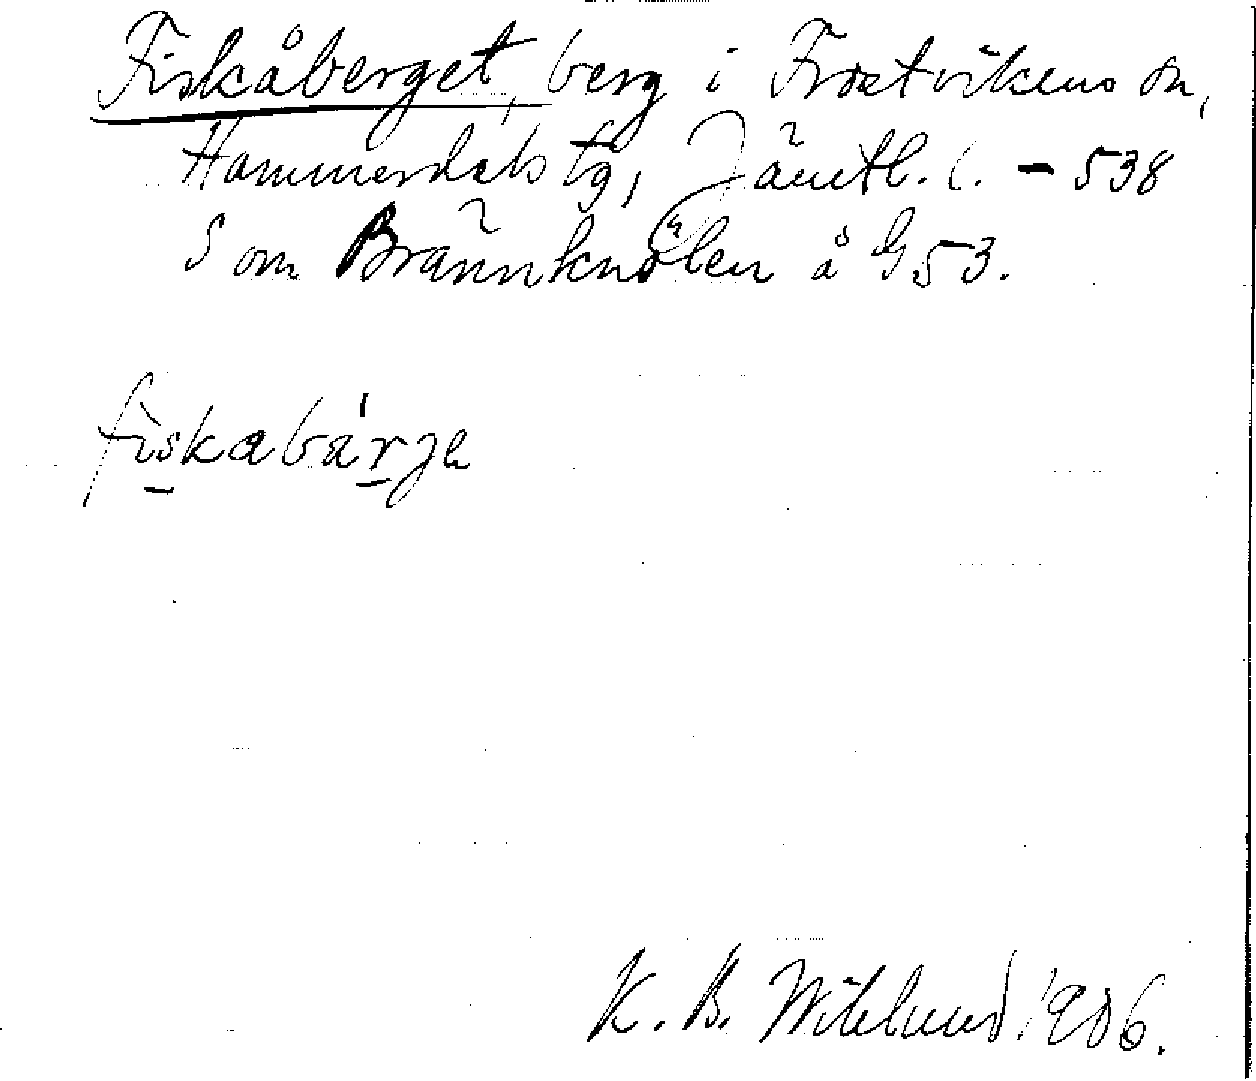 Fiskåberget, berg i Frostvikens sn,
Hammerdals tg, Jämtl. l. - 538
S om Brännknölen å G.53.
fiskabärje
K. B. Wiklund 1906.